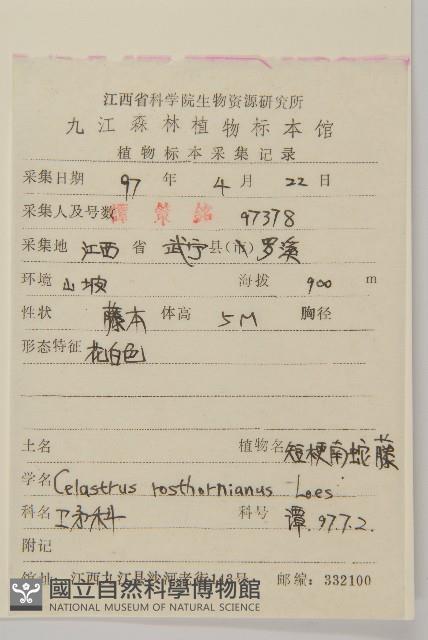 江西省科学院生物资源研究所
九江森林植物标本馆
植物标本采集记录
采集日期 97 年 4 月 22 日
采集人及号数 谭策铭 97378
采集地 江西 省 武宁 县(市) 罗溪
环境 山坡 海拔 900 m
性状 藤本 体高 5M 胸径
形态特征 花白色
土名 植物名 短梗南蛇藤
学名 Celastrus rosthornianus Loes
科名 卫矛科 科号 谭.97.7.2.
附记
馆址 江西九江县沙河老街143号 邮编:332100
國立自然科學博物館
NATIONAL MUSEUM OF NATURAL SCIENCE